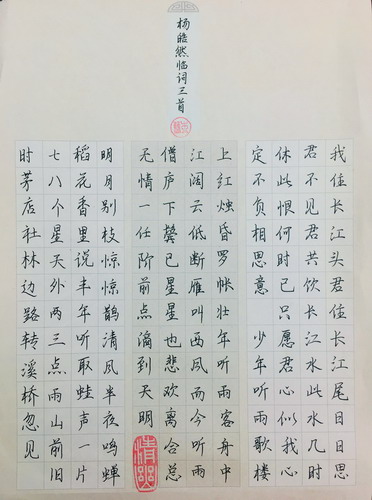 杨皓然临词三首
我住长江头君住长江尾日日思
君不见君共饮长江水此水几时
休此恨何时已只愿君心似我心
定不负相思意 少年听雨歌楼
上红烛昏罗帐壮年听雨客舟中
江阔云低断雁叫西风而今听雨
僧庐下鬓已星星也悲欢离合总
无情一任阶前点滴到天明
明月别枝惊鹊清风半夜鸣蝉
稻花香里说丰年听取蛙声一片
七八个星天外两三点雨山前旧
时茅店社林边路转溪桥忽见